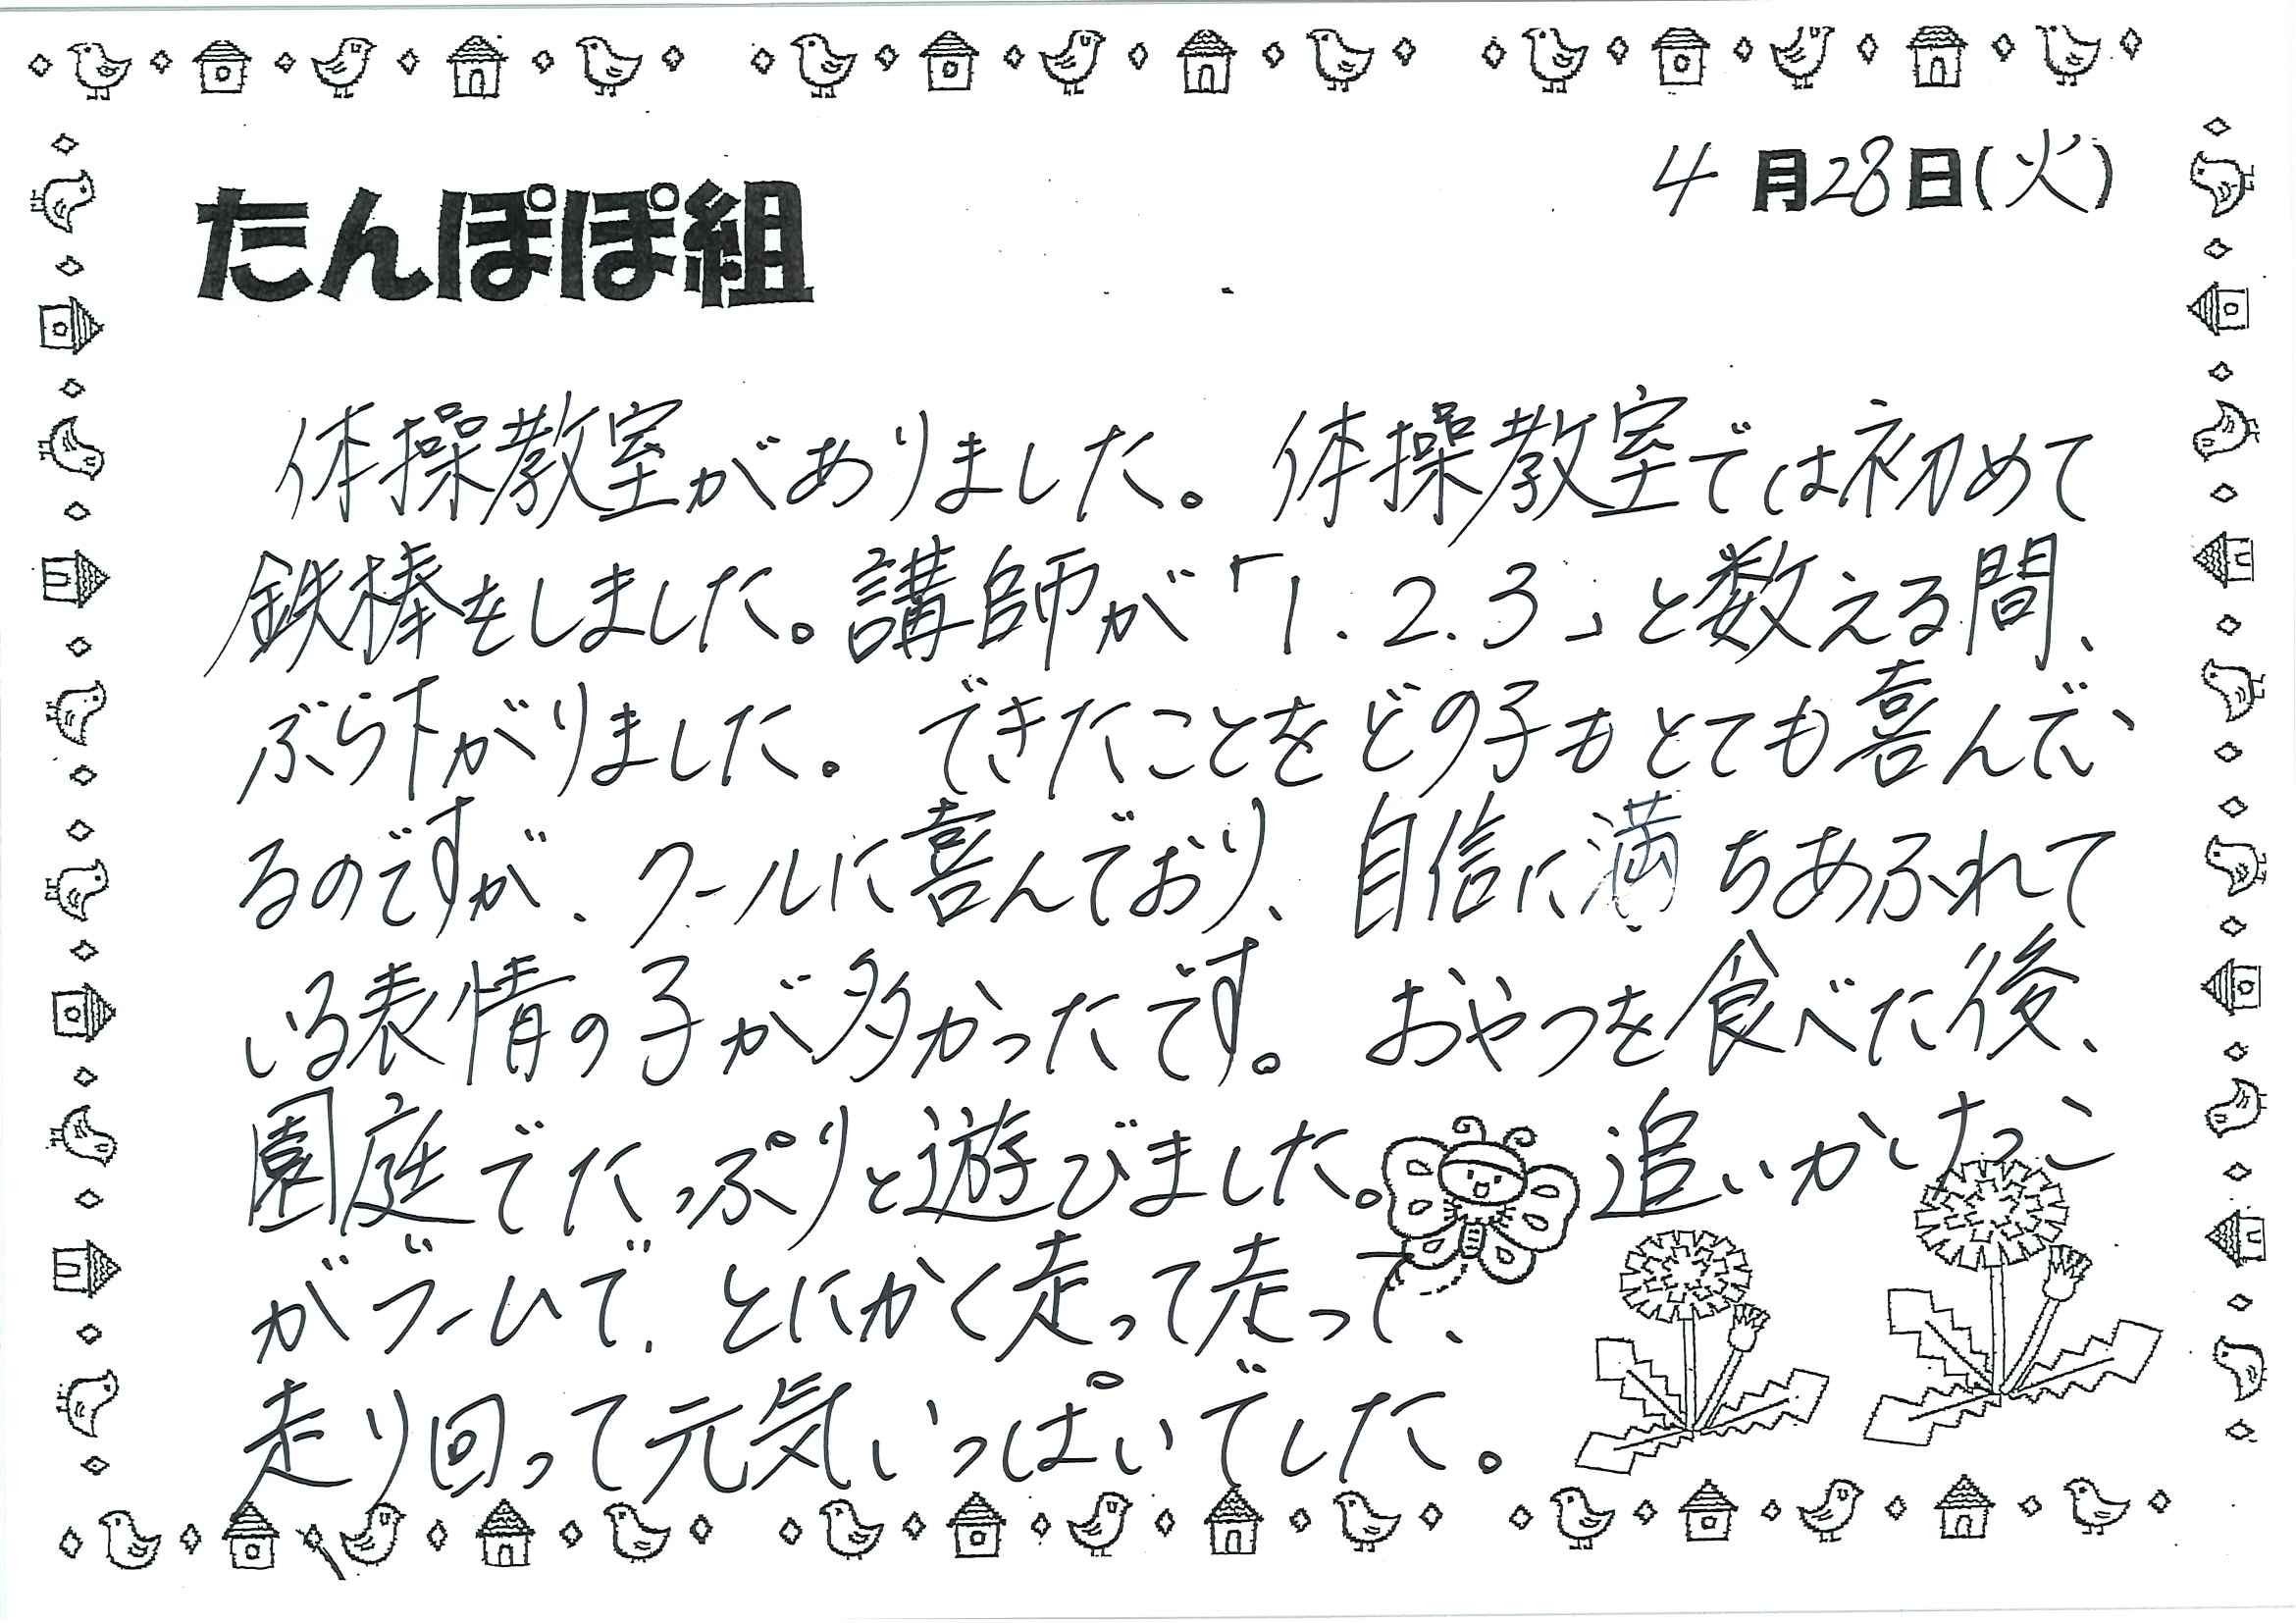 4月28日(火)
たんぽぽ組
体操教室がありました。体操教室では初めて
鉄棒をしました。講師が「1.2.3」と数える間、
ぶら下がりました。できたことをどの子もとても喜んで、
るのですが、クールに喜んでおり、自信に満ちあふれて
いる表情の子が多かったです。おやつを食べた後、
園庭でたっぷりと遊びました。追いかけっこ
がブームで、とにかく走って走って、
走り回って元気いっぱいでした。